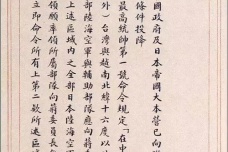 國政府及日本帝國大本營已向聯
條件投降
最高統帥第一號命令規定「在中
外)台灣與越南北緯十六度以
部陸海空軍與輔助部隊應向蔣
上述區域內之全部日本陸海空軍
領願率領所屬部隊向蔣委員長
立即命令所有上第二款所述區域